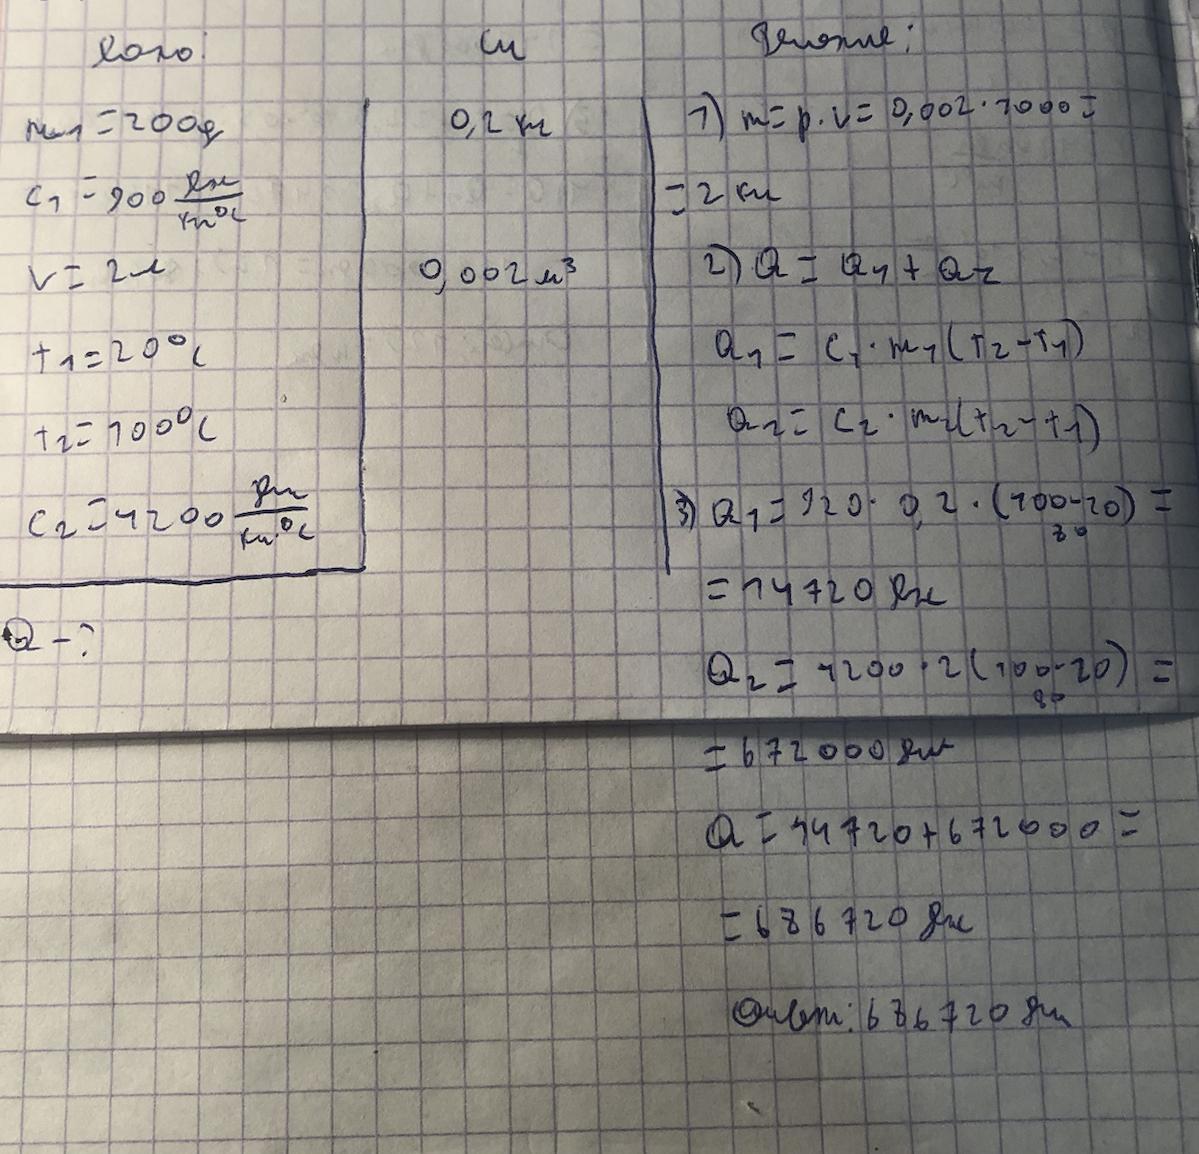 Дано:
m₁ = 200г
c₁ = 900 Дж/кг°C
V = 2л
t₁ = 20°C
t₂ = 100°C
c₂ = 4200 Дж/кг·°C
Q - ?
Си
0,2 кг
0,002 м³
Решение:
1) m = p · V = 0,002 · 1000 =
= 2 кг
2) Q = Q₁ + Q₂
Q₁ = c₁ · m₁ (t₂ - t₁)
Q₂ = c₂ · m₂ (t₂ - t₁)
3) Q₁ = 920 · 0,2 · (100-20) =
80
= 14720 Дж
Q₂ = 4200 · 2 (100-20) =
80
= 672000 Дж
Q = 14720 + 672000 =
= 686720 Дж
Ответ: 686720 Дж